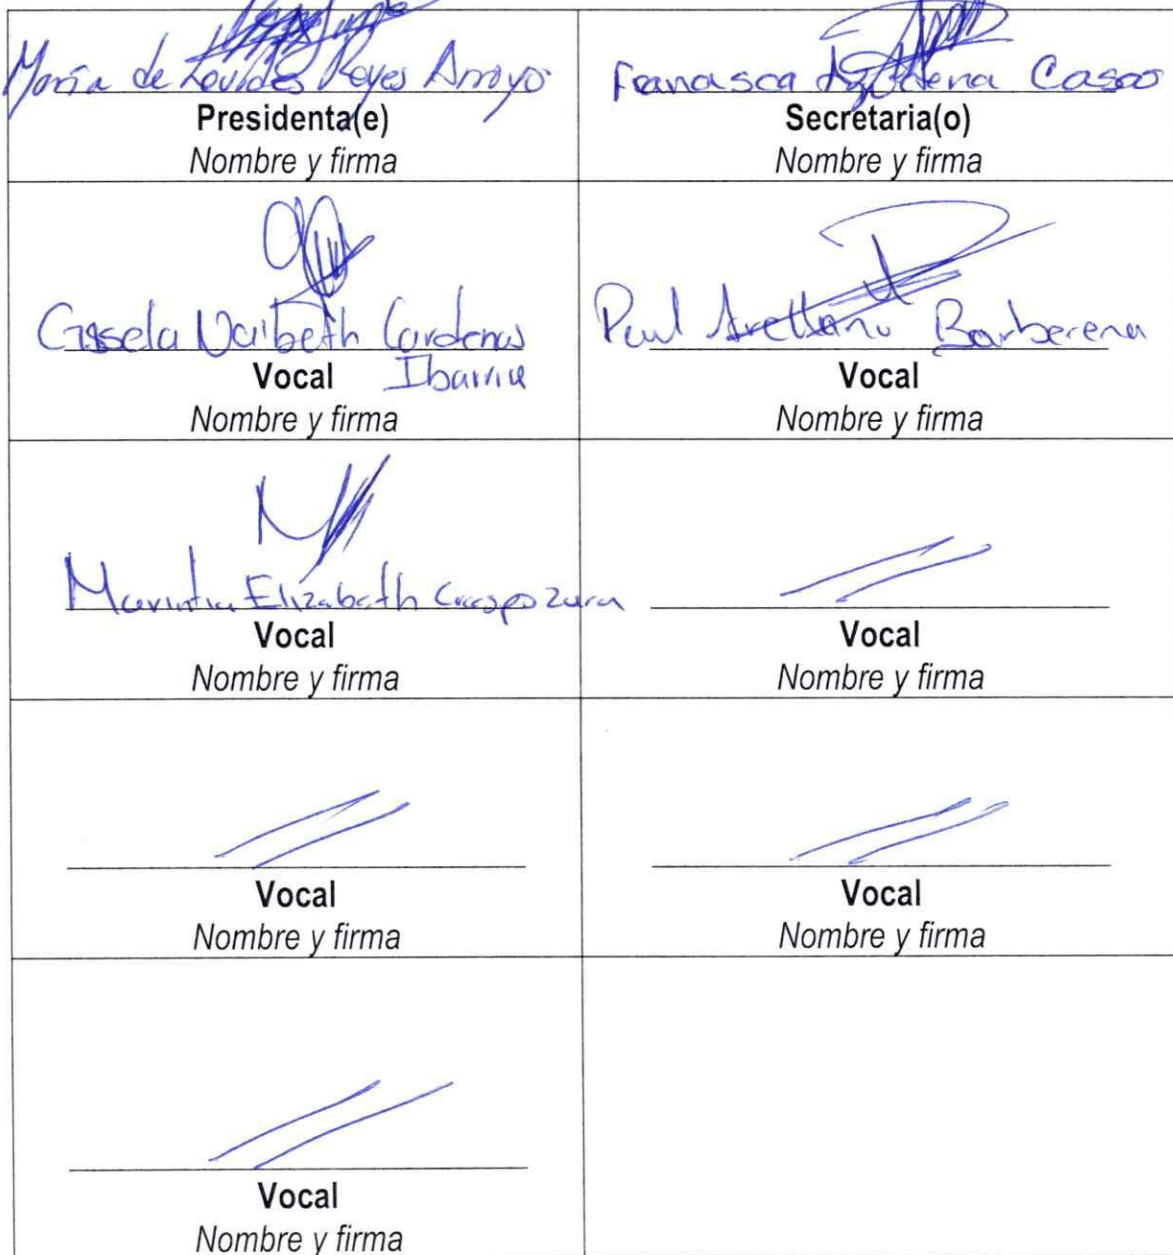 María de Lourdes Reyes Arroyo
Presidenta(e)
Nombre y firma
Francisca Casas
Secretaria(o)
Nombre y firma
Gissela Naibeth Cardenas
Ibarra
Vocal
Nombre y firma
Paul Arellano Barberena
Vocal
Nombre y firma
Elizabeth
Vocal
Nombre y firma
Vocal
Nombre y firma
Vocal
Nombre y firma
Vocal
Nombre y firma
Vocal
Nombre y firma